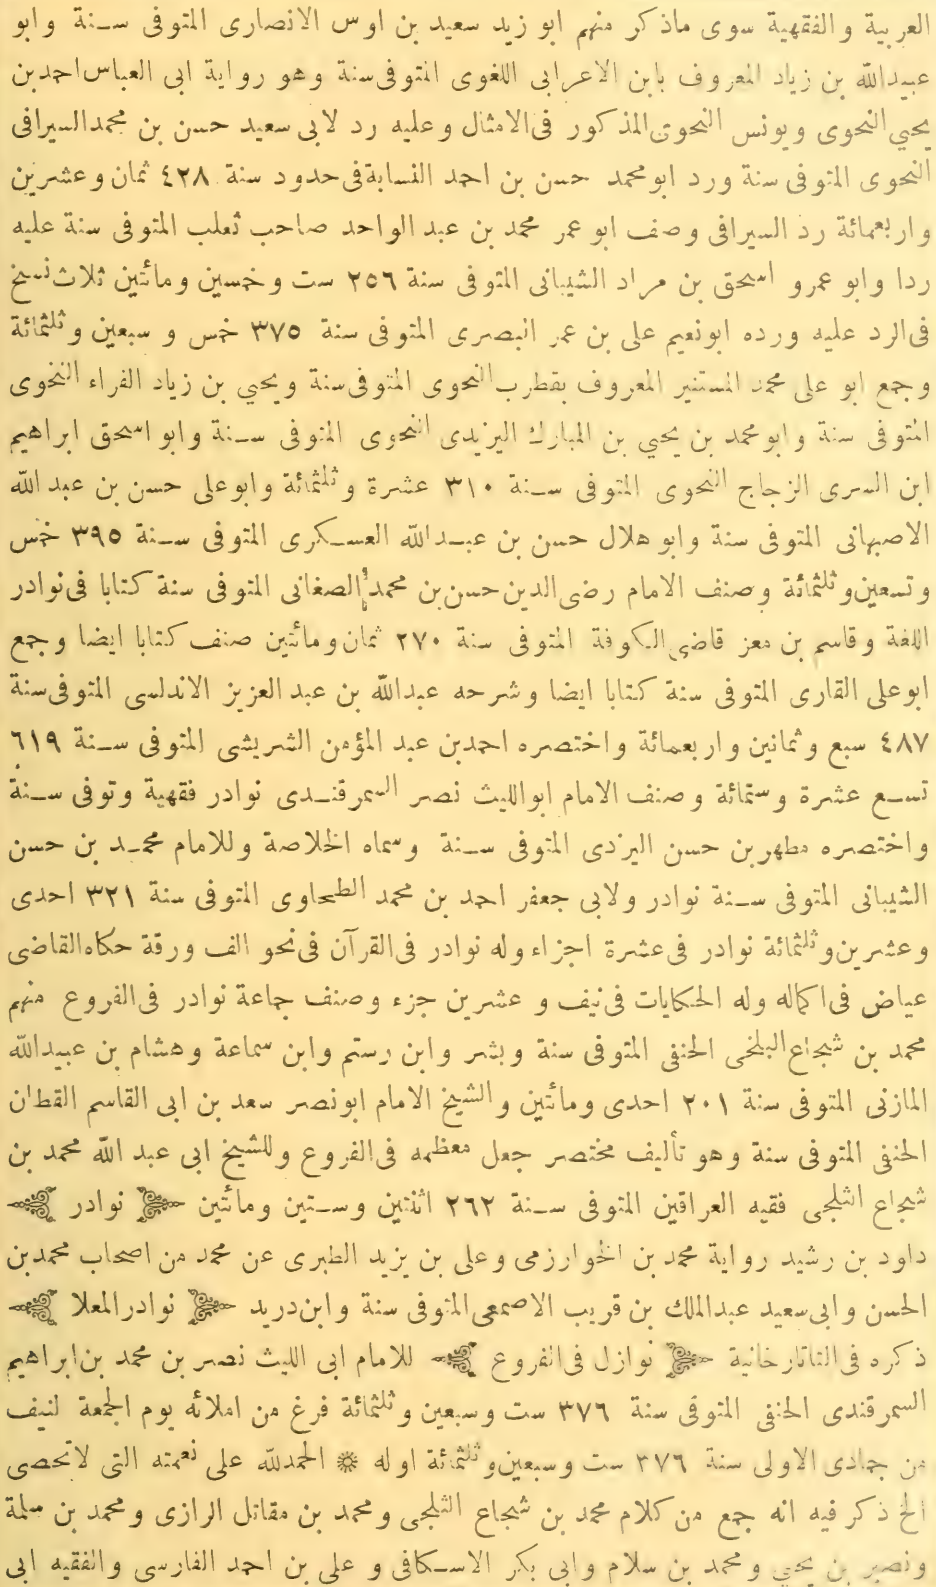 العربية والفقهية سوى ماذكر منهم ابو زيد سعيد بن اوس الانصارى المتوفى سـنة وابو
عبيدالله بن زياد المعروف بابن الاعرابى اللغوى المتوفى سنة وهو رواية ابى العباس احمدبن
يحيى النحوى ويونس النحوى المذكور فى الامثال وعليه رد لابى سعيد حسن بن محمد السيرافى
النحوى المتوفى سنة ورد ابومحمد حسن بن احمد النسابة فى حدود سنة ٤٢٨ ثمان وعشرين
واربعمائة رد السيرافى وصف ابو عمر محمد بن عبد الواحد صاحب ثعلب المتوفى سنة عليه
ردا وابو عمرو اسحق بن مراد الشيبانى المتوفى سنة ٢٥٦ ست وخمسين ومائتين ثلاث نسخ
فى الرد عليه ورده ابونعيم على بن عمر البصرى المتوفى سنة ٣٧٥ خمس و سبعين وثلثمائة
وجمع ابو على محمد المستنير المعروف بقطرب النحوى المتوفى سنة ويحيى بن زياد الفراء النحوى
المتوفى سنة وابومحمد بن يحيى بن المبارك اليزيدى النحوى المتوفى سـنة وابو اسحق ابراهيم
ابن السرى الزجاج النحوى المتوفى سـنة ٣١٠ عشرة وثلثمائة وابوعلى حسن بن عبد الله
الاصبهانى المتوفى سنة وابو هلال حسن بن عبـدالله العسـكرى المتوفى سـنة ٣٩٥ خمس
وتسعين وثلثمائة وصنف الامام رضى الدين حسن بن محمد الصغانى المتوفى سنة كتابا فى نوادر
اللغة وقاسم بن معز قاضى الكوفة المتوفى سنة ٢٧٠ ثمان ومائتين صنف كتابا ايضا وجمع
ابوعلى القارى المتوفى سنة كتابا ايضا وشرحه عبدالله بن عبد العزيز الاندلسى المتوفى سنة
٤٨٧ سبع وثمانين واربعمائة واختصره احمدبن عبد المؤمن الشريشى المتوفى سـنة ٦١٩
تسـع عشرة وستمائة وصنف الامام ابوالليث نصر السمرقنـدى نوادر فقهية وتوفى سـنة
واختصره مطهر بن حسن اليزدى المتوفى سـنة وسماه الخلاصة وللامام محمـد بن حسن
الشيبانى المتوفى سـنة نوادر ولابى جعفر احمد بن محمد الطحاوى المتوفى سنة ٣٢١ احدى
وعشرين وثلثمائة نوادر فى عشرة اجزاء وله نوادر فى القرآن فى نحو الف ورقة حكاه القاضى
عياض فى اكماله وله الحكايات فى نيف و عشرين جزء وصنف جماعة نوادر فى الفروع منهم
محمد بن شجاع البلخى الحنفى المتوفى سنة وبشر وابن رستم وابن سماعة وهشام بن عبيدالله
المازنى المتوفى سنة ٢٠١ احدى ومائتين والشيخ الامام ابونصر سعد بن ابى القاسم القطان
الحنفى المتوفى سنة وهو تأليف مختصر جعل معظمه فى الفروع وللشيخ ابى عبد الله محمد بن
شجاع الثلجى فقيه العراقين المتوفى سـنة ٢٦٢ اثنتين وسـتين ومائتين نوادر
داود بن رشيد رواية محمد بن الخوارزمى وعلى بن يزيد الطبرى عن محمد من اصحاب محمدبن
الحسن وابى سعيد عبدالملك بن قريب الاصمعى المتوفى سنة وابن دريد نوادر المعلا
ذكره فى التاتارخانية نوازل فى الفروع للامام ابى الليث نصر بن محمد بن ابراهيم
السمرقندى الحنفى المتوفى سنة ٣٧٦ ست وسبعين وثلثمائة فرغ من املائه يوم الجمعة لنيف
من جمادى الاولى سنة ٣٧٦ ست وسبعين وثلثمائة اوله الحمدلله على نعمته التى لاتحصى
الخ ذكر فيه انه جمع من كلام محمد بن شجاع الثلجى ومحمد بن مقاتل الرازى ومحمد بن سلمة
ونصير بن يحيى ومحمد بن سلام وابى بكر الاسـكافى وعلى بن احمد الفارسى والفقيه ابى